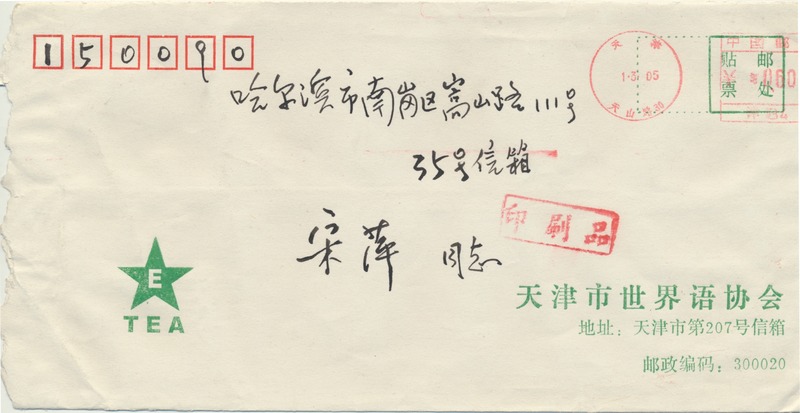 150090
天津
1·3 05
天山路
中国邮
邮
贴
处
票
060
哈尔滨市南岗区嵩山路111号
35号信箱
宋萍 同志
印刷品
E
TEA
天津市世界语协会
地址：天津市第207号信箱
邮政编码：300020